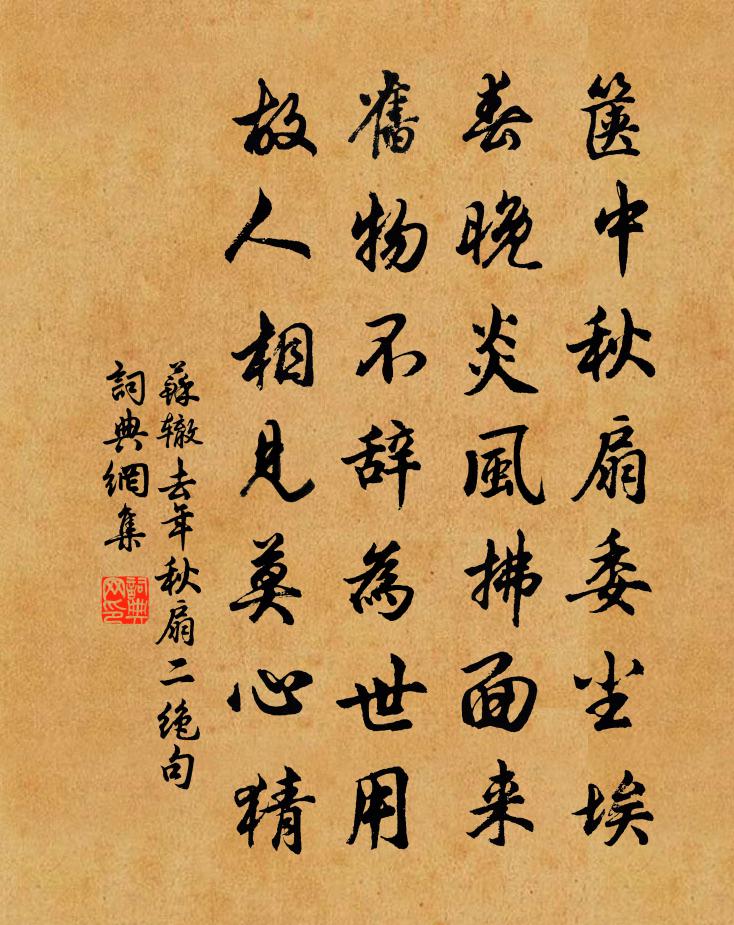 篋中秋扇委尘埃
春晚炎風拂面来
舊物不辞為世用
故人相見莫心猜
蘇辙去年秋扇二绝句
詞典網集
詞典网印